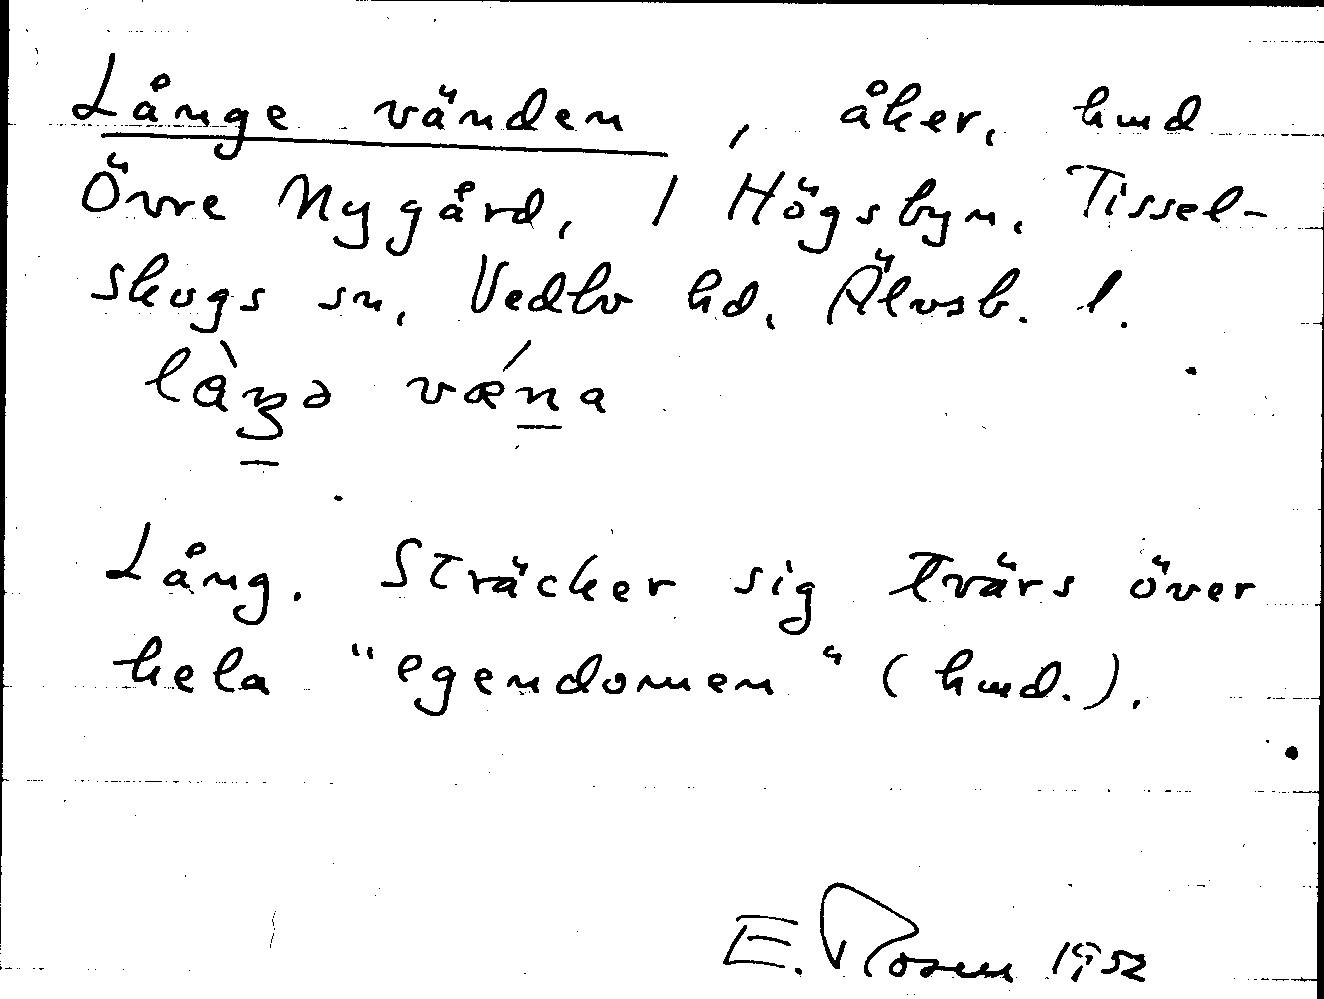 Långe vänden, åker, hmd
Övre Nygård, 1 Högsbyn, Tissel-
skogs sn, Vedbo hd, Älvsb. l.
là̀ŋə væ´na
Lång. Sträcker sig tvärs över
hela "egendomen" (hmd.).
E. Rosen 1952